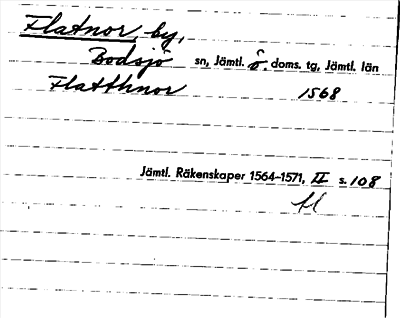 Flatnor, by,
Bodsjö sn, Jämtl. ö. doms. tg, Jämtl. län
Flatthnor 1568
Jämtl. Räkenskaper 1564–1571, II s. 108